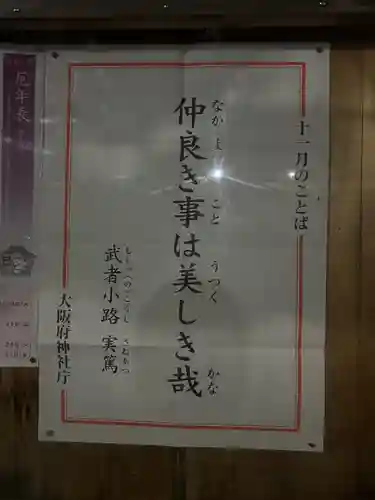 十一月のことば
仲良き事は美しき哉
なか よ こと うつく かな
武者小路 実篤
むしゃのこうじ さねあつ
大阪府神社庁
厄年表